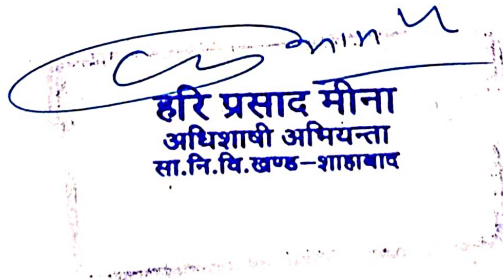 हरि प्रसाद मीना
अधिशाषी अभियन्ता
सा.नि.वि.खण्ड–शाहाबाद